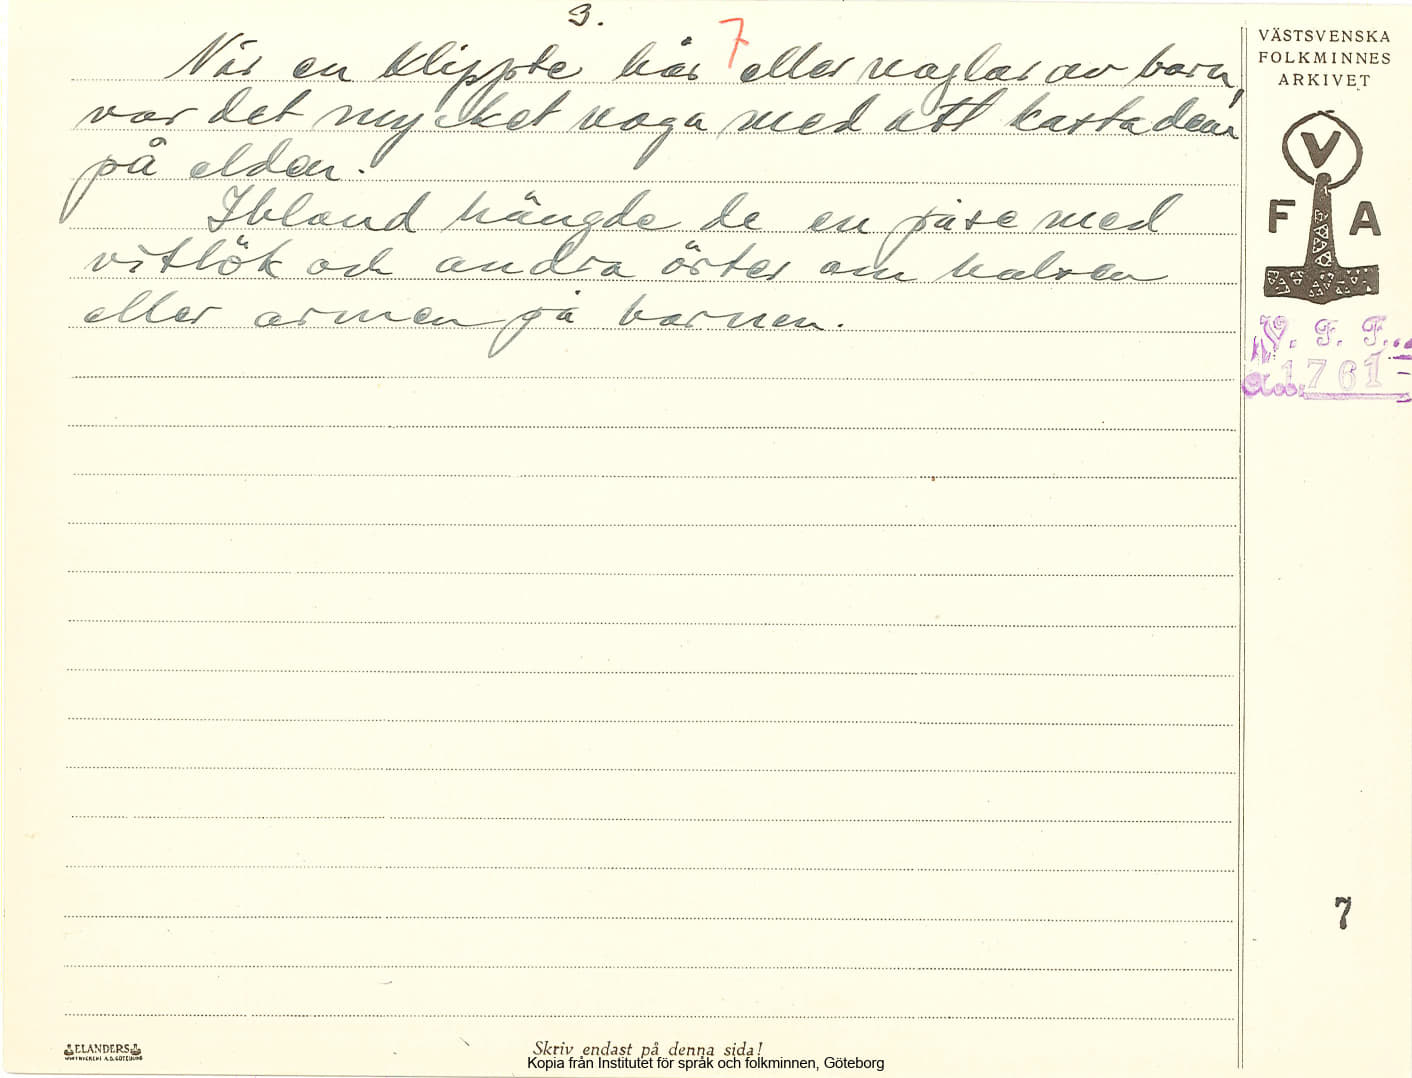 3.
7
När en klippte hår eller naglar av barn,
var det mycket noga med att kasta dem
på elden.
Ibland hängde de en påse med
vitlök och andra örter om halsen
eller armen på barnen.
VÄSTSVENSKA
FOLKMINNES
ARKIVET
V
F A
V. F. F.
1761
7
ELANDERS
Skriv endast på denna sida!
Kopia från Institutet för språk och folkminnen, Göteborg